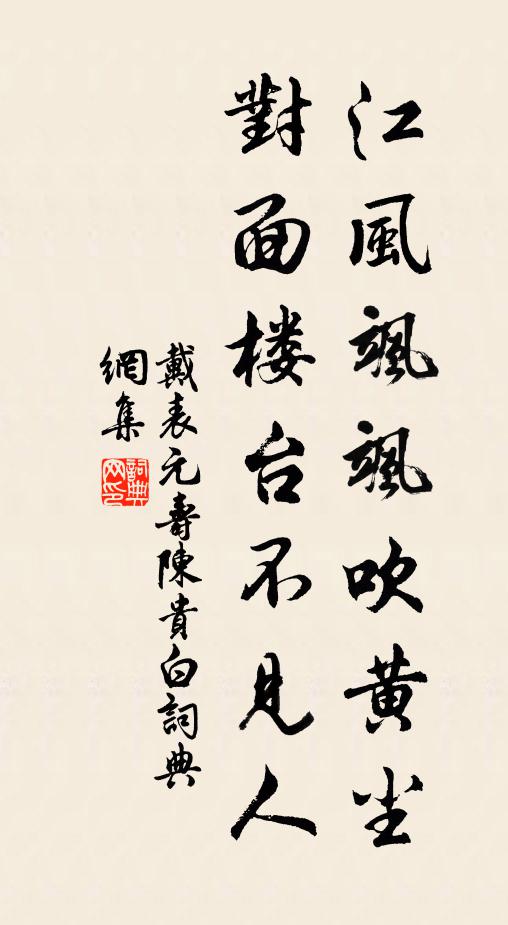 江風颯颯吹黄尘
對面楼台不見人
戴表元壽陳貴白詞典
網集
詞典网印